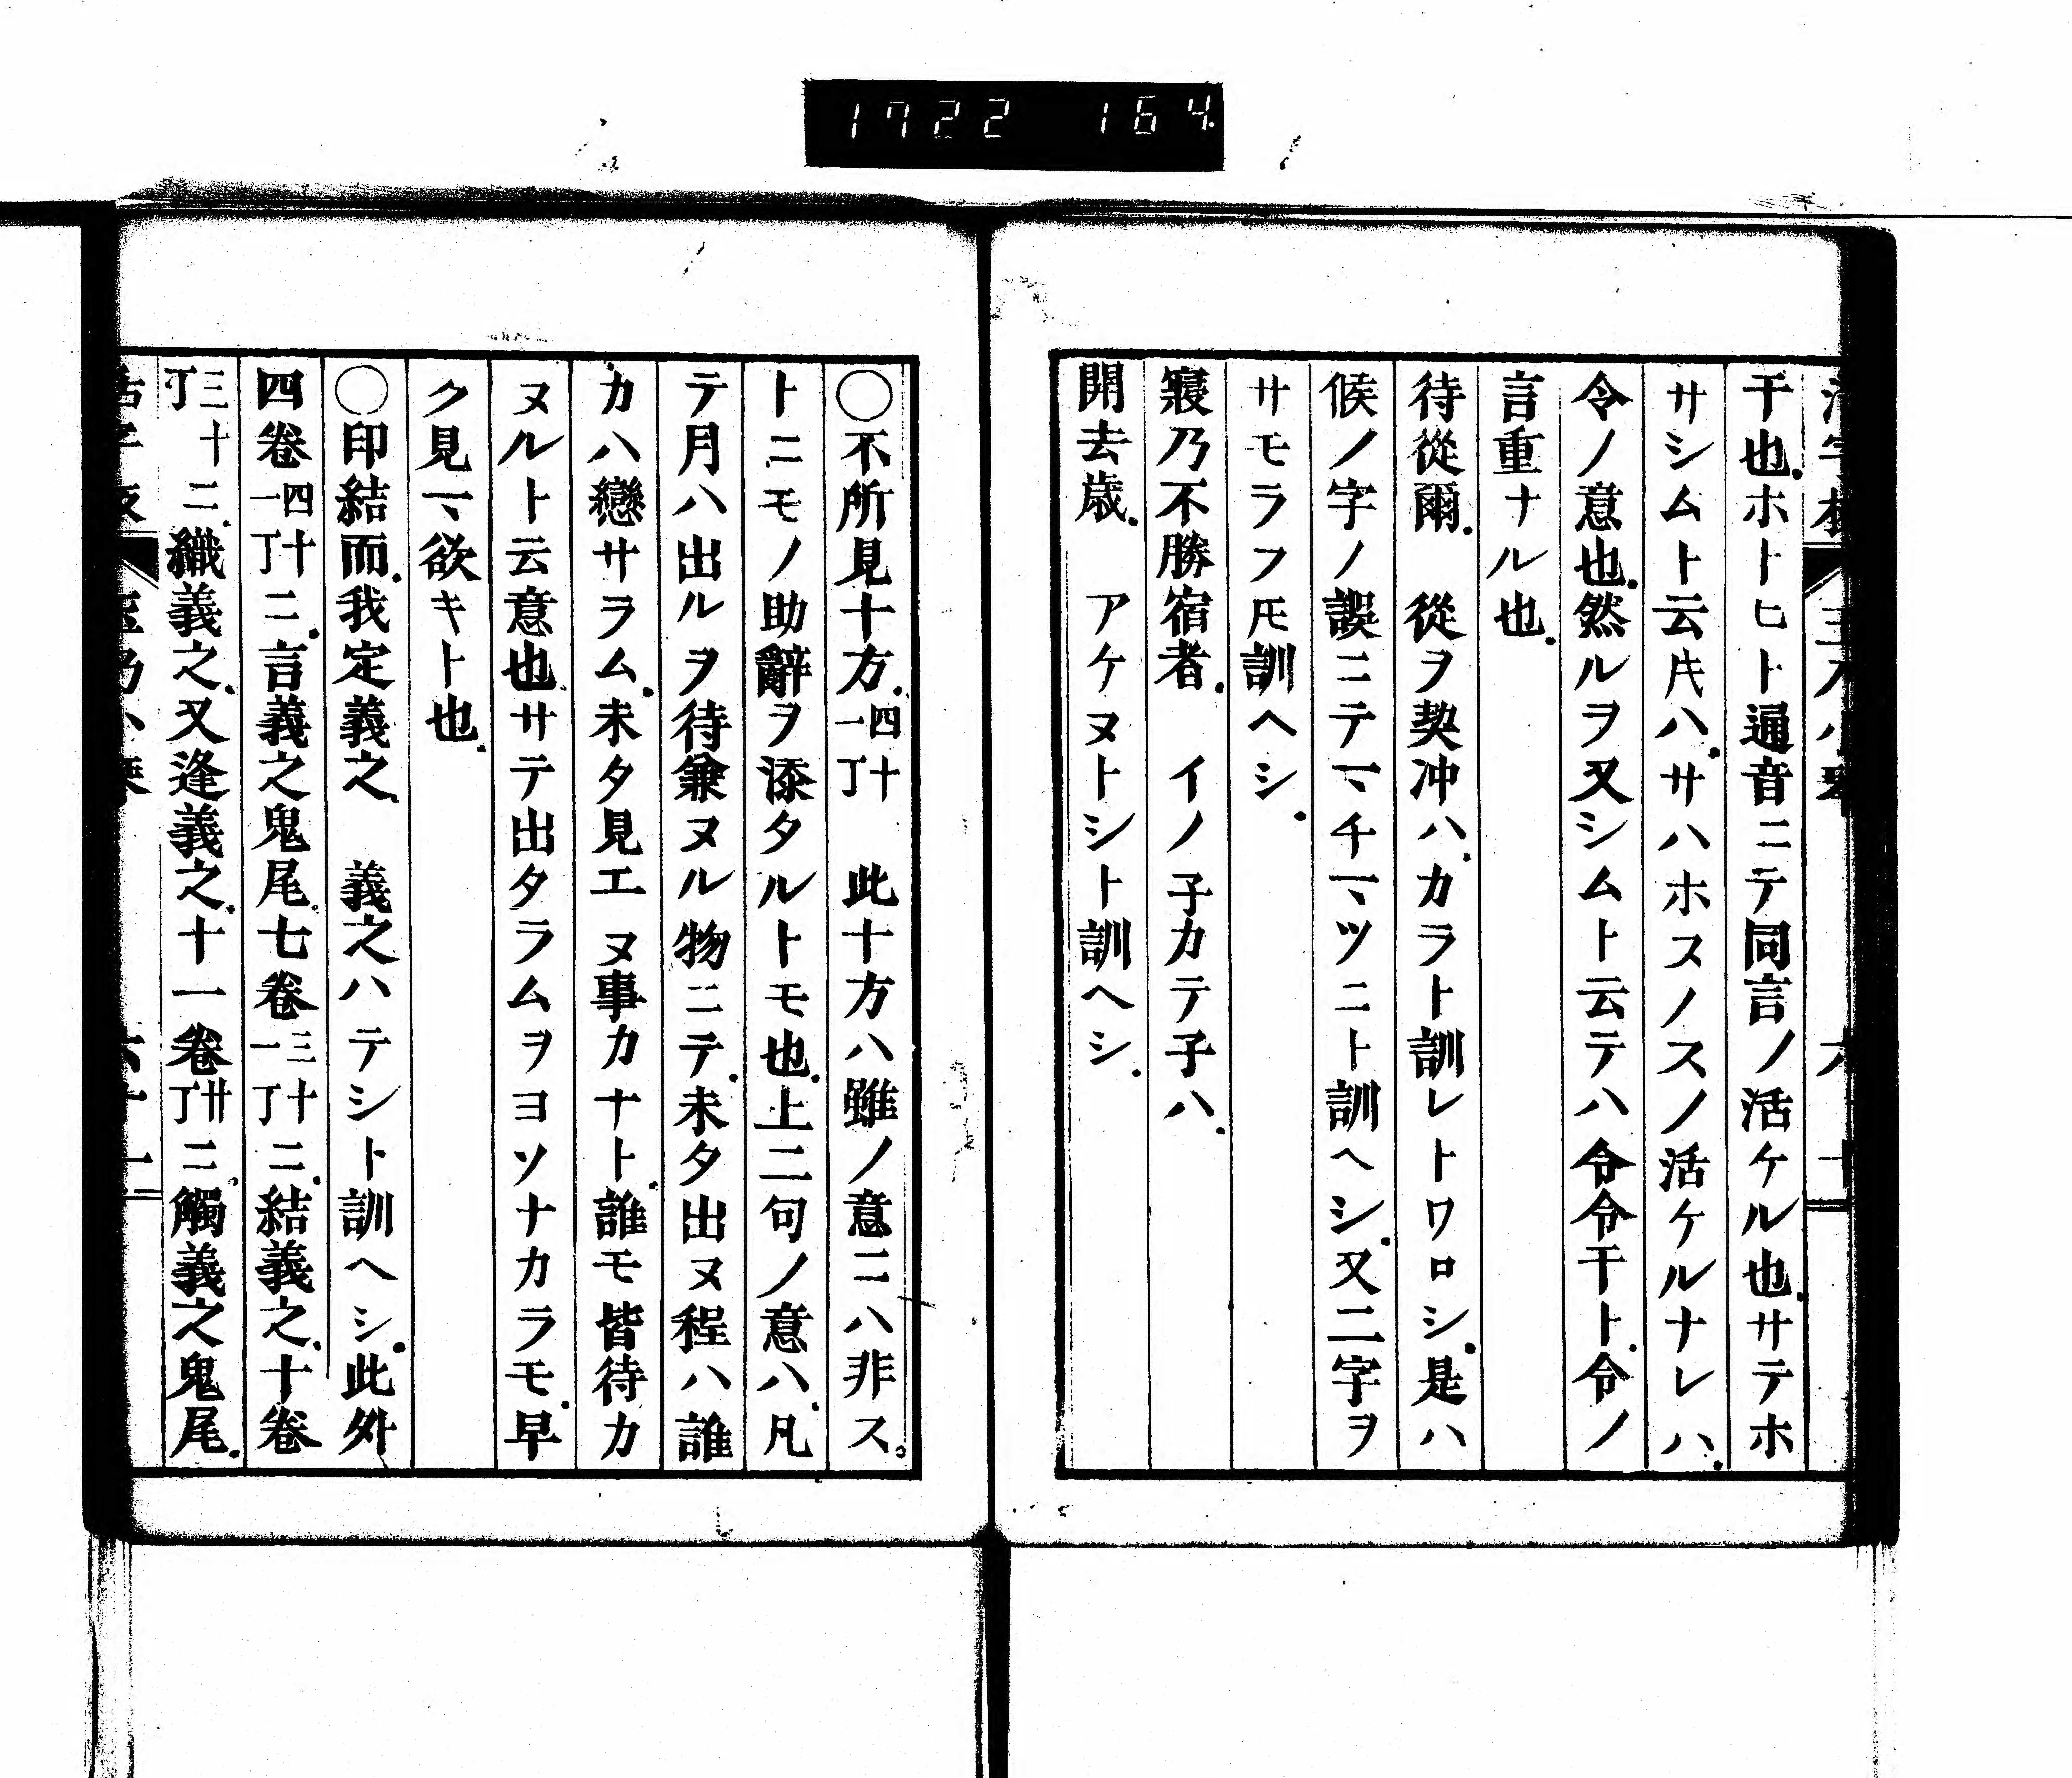 1722 164
干也.ホトヒト通音ニテ同言ノ活ケル也.サテホ
サシムト云𪜈ハ.サハホスノスノ活ケルナレハ.
令ノ意也.然ルヲ又シムト云テハ令令干ト.令ノ
言重ナル也.
待從爾. 從ヲ契冲ハ.カラト訓レトワロシ.是ハ
候ノ字ノ誤ニテヿチヿツニト訓ヘシ.又二字ヲ
サモラフ𪜈訓ヘシ.
寢乃不勝宿者. イノ子カテ子ハ.
開去歳. アケヌトシト訓ヘシ.
〇不所見十方.四十一丁 此十方ハ雖ノ意ニハ非ス。
トニモノ助辭ヲ添タルトモ也.上二句ノ意ハ.凡
テ月ハ出ルヲ待兼ヌル物ニテ.未タ出ヌ程ハ誰
カハ戀サヲム.未タ見エヌ事カナト.誰モ皆待カ
ヌルト云意也.サテ出タラムヲヨソナカラモ.早
ク見ヿ欲キト也.
〇印結而.我定義之. 義之ハテシト訓ヘシ.此外
四卷四十一丁ニ.言義之鬼尾.七卷三十一丁ニ.結義之.十卷
三十丁ニ.織義之.又逢義之.十一卷廿丁ニ.觸義之鬼尾.